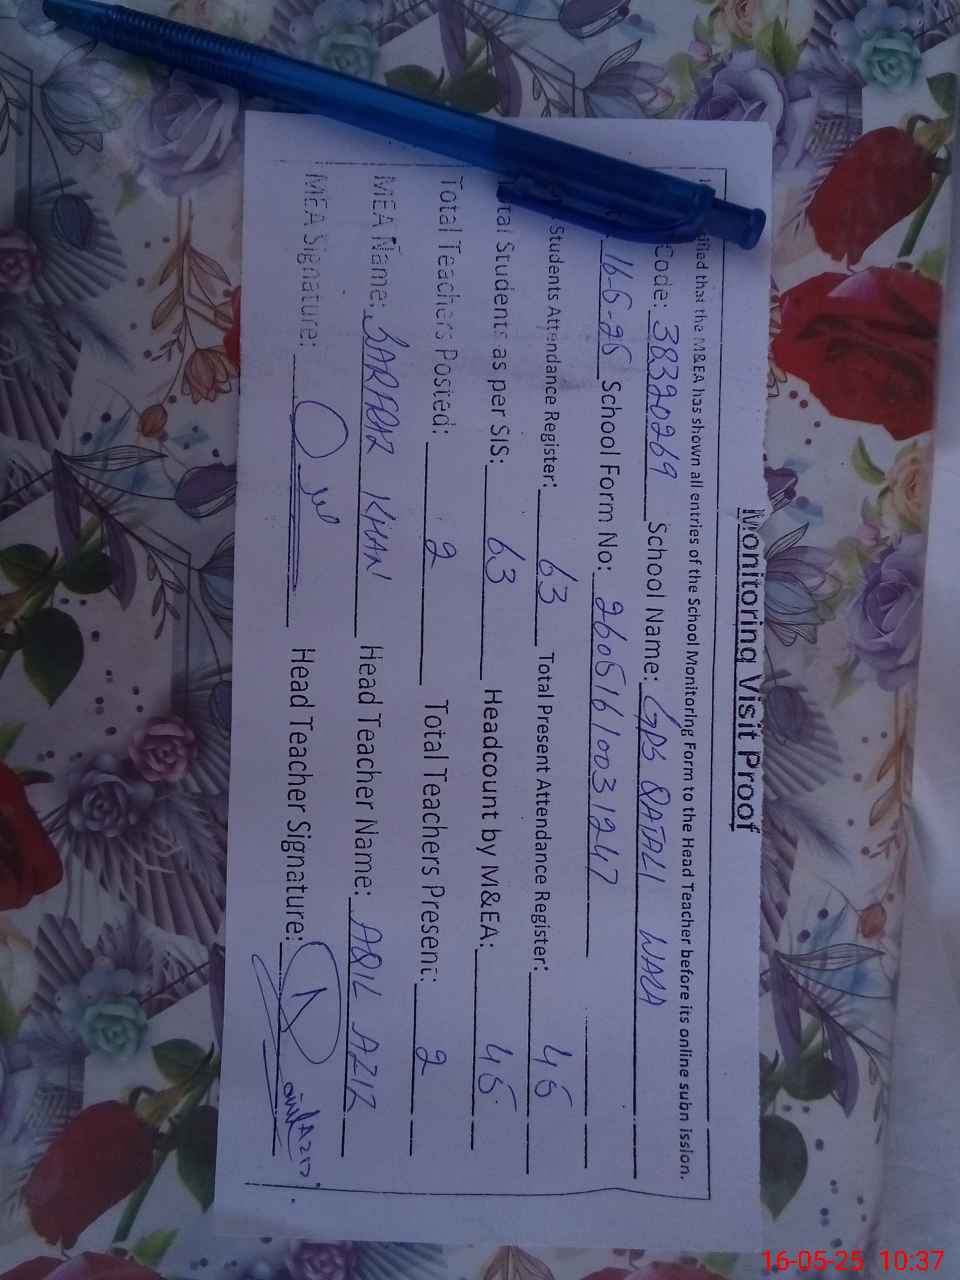 Monitoring Visit Proof
ified that the M&EA has shown all entries of the School Monitoring Form to the Head Teacher before its online subn ission.
Code: 38320269 School Name: GPS QATALI WALA
16-5-25 School Form No: 26051610031247
Students Attendance Register: 63 Total Present Attendance Register: 45
tal Students as per SIS: 63 Headcount by M&EA: 45
Total Teachers Posted: 2 Total Teachers Present: 2
MEA Name: SARFARAZ KHAN Head Teacher Name: AQIL AZIZ
MEA Signature: Head Teacher Signature:
16-05-25 10:37